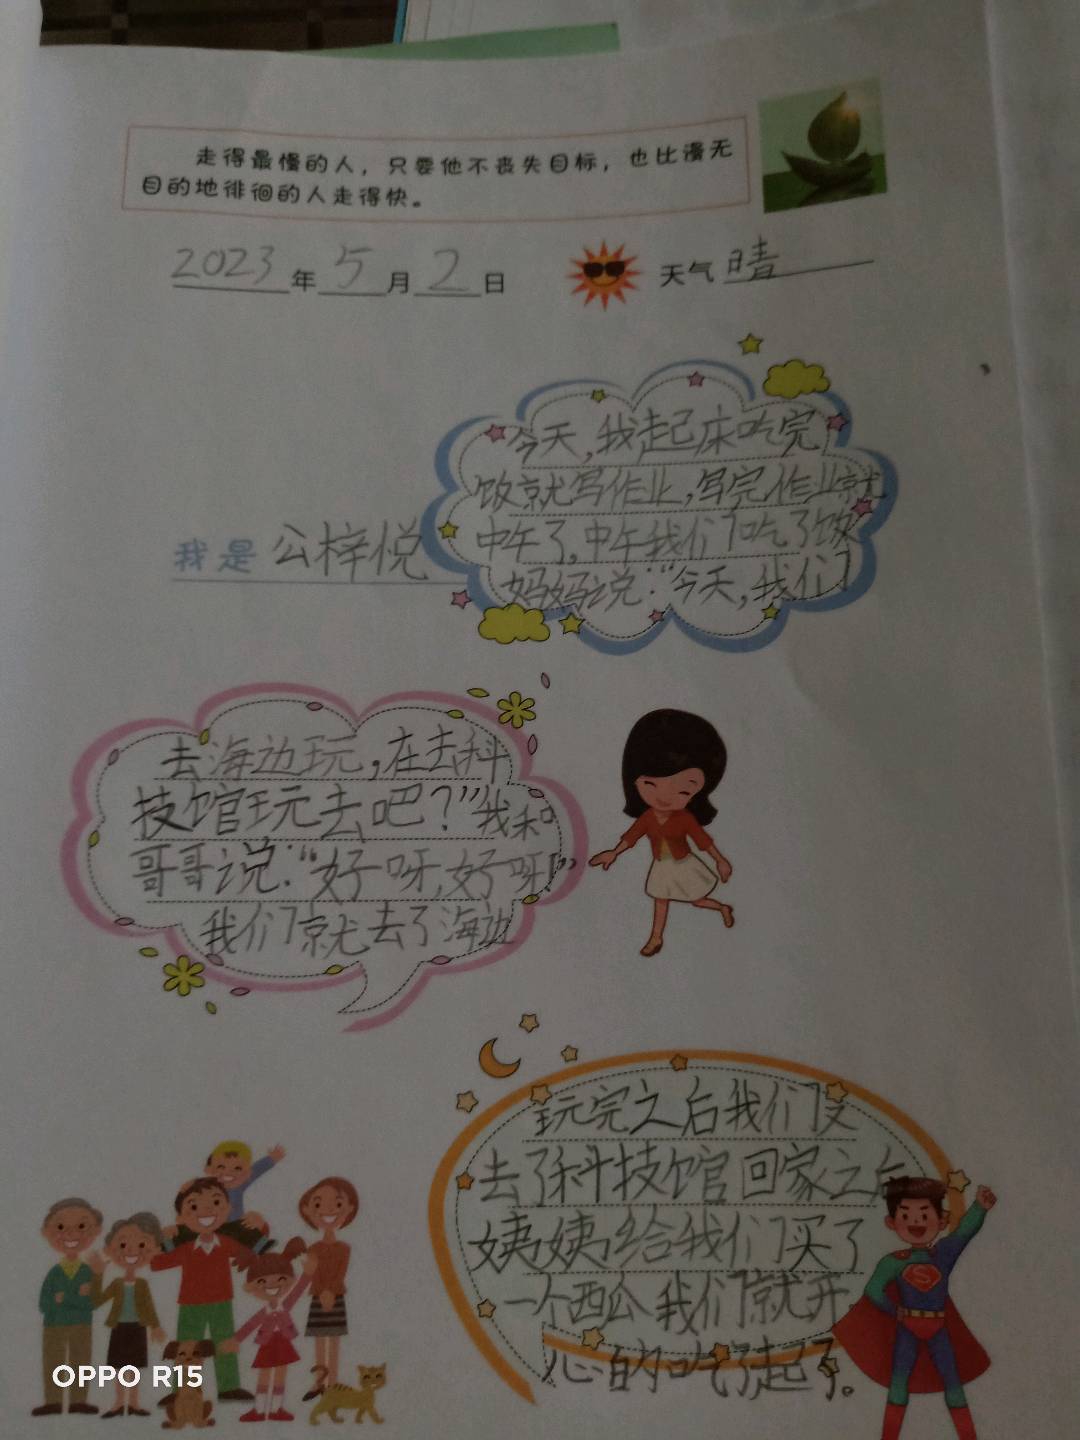 走得最慢的人，只要他不丧失目标，也比漫无
目的地徘徊的人走得快。
2023年5月2日
天气 晴
我是 公梓悦
今天,我起床吃完
饭就写作业,写完作业就
中午了,中午我们吃了饭
妈妈说:“今天,我们
去海边玩,在去科
技馆玩去吧?”我和
哥哥说:“好呀,好呀!”
我们就去了海边
玩完之后我们又
去了科技馆回家之后
姨姨给我们买了
一个西瓜我们就开
心的吃了起了。
OPPO R15